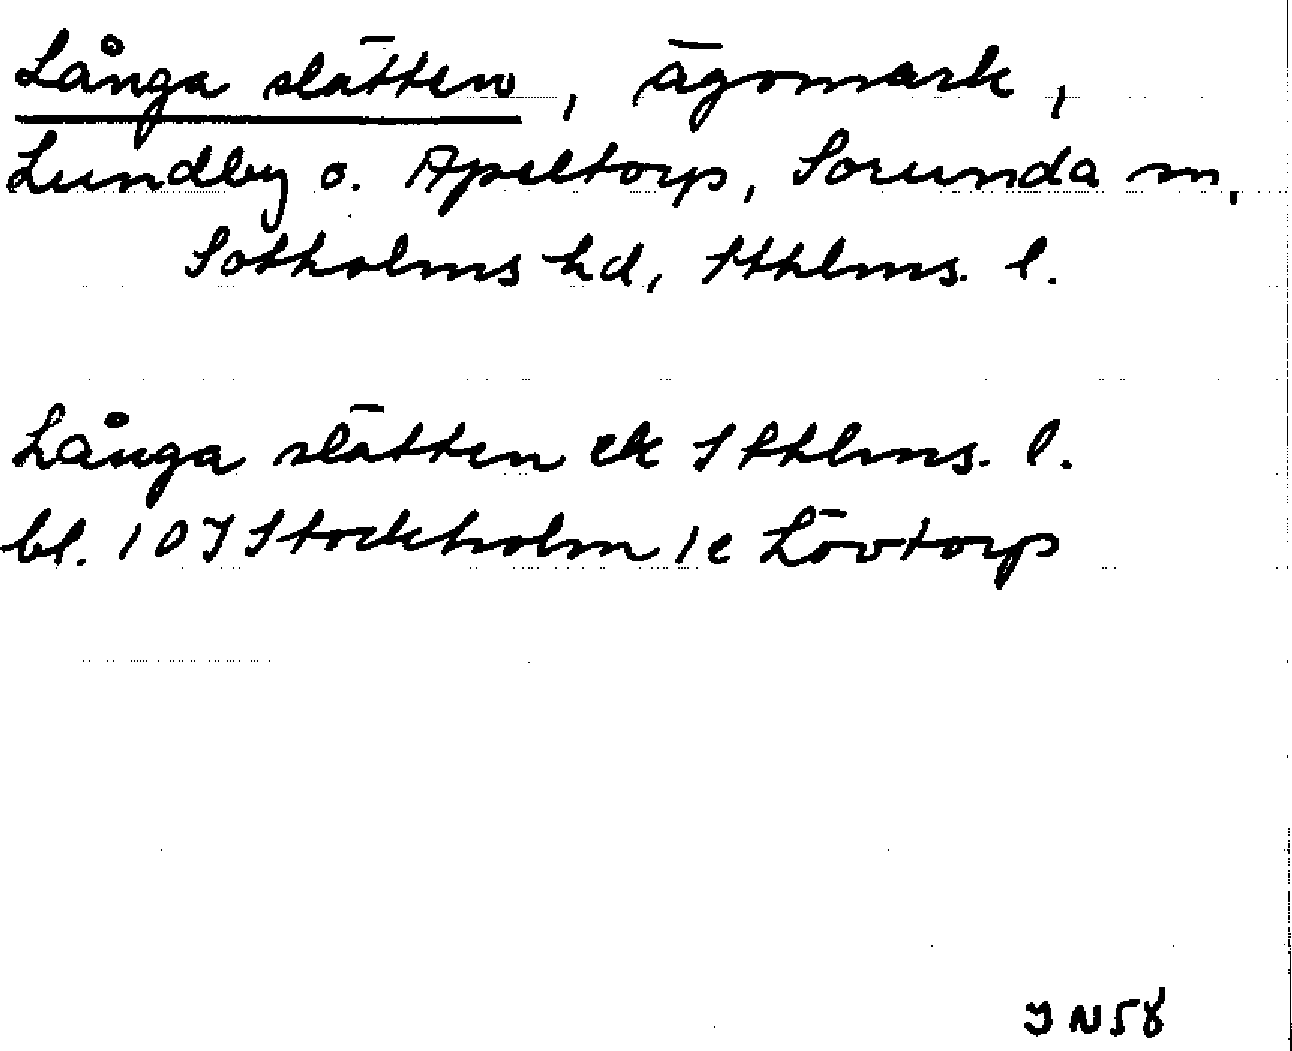 Långa slätten, ägomark,
Lundby o. Apeltorp, Sorunda sn,
Sotholms hd, Sthlms. l.
Långa slätten ek Sthlms. l.
bl. 10I Stockholm 1e Lövtorp
J N 58